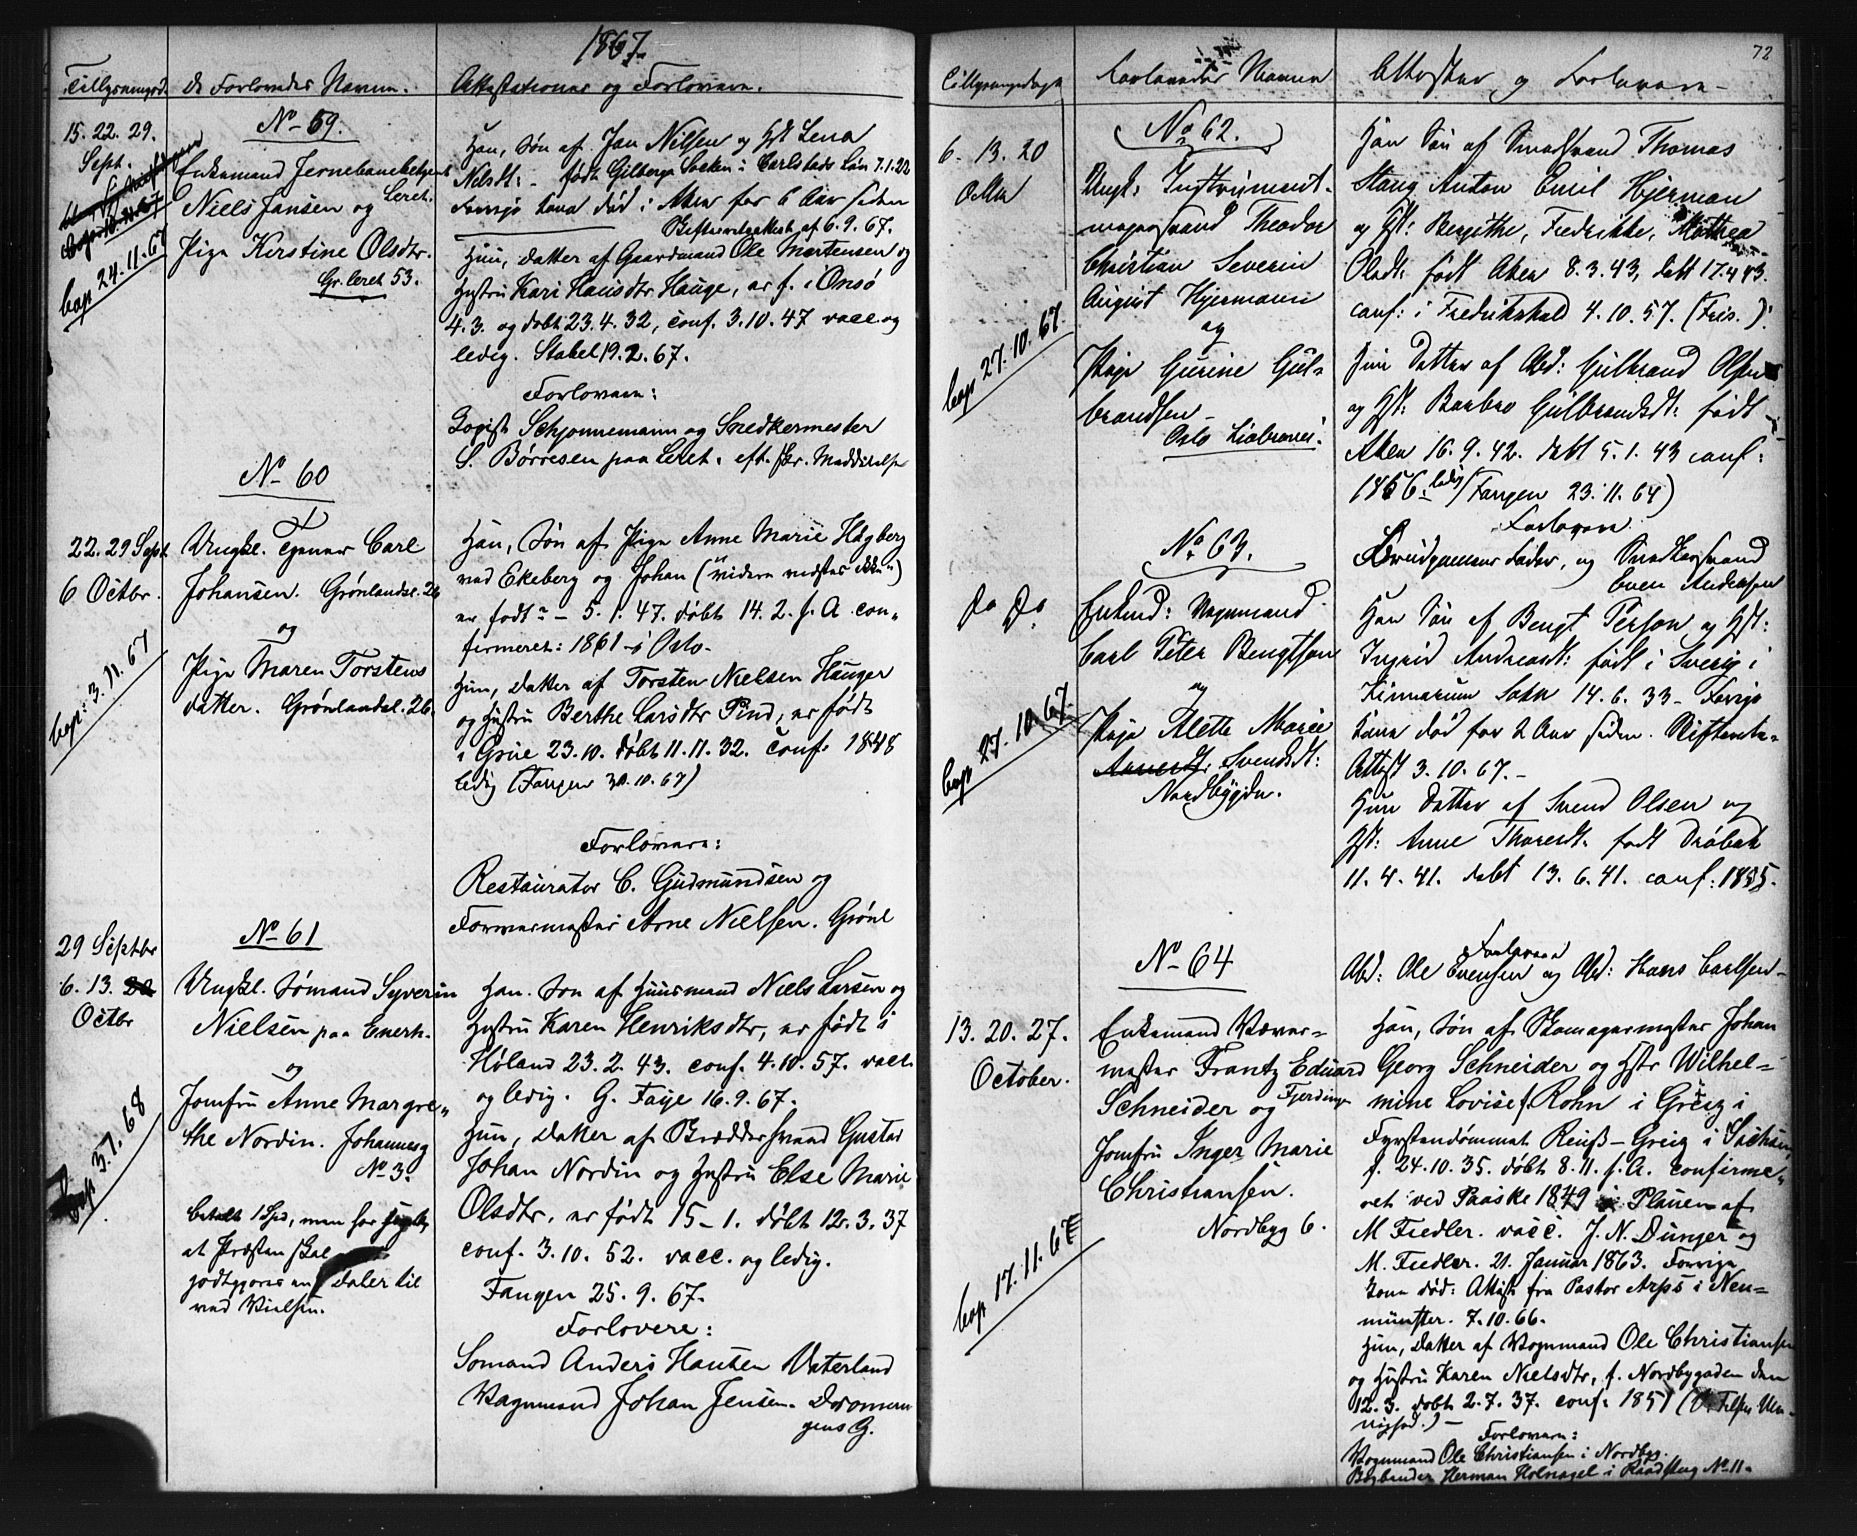 1867.
Tillysningsd. De Forlovedes Navne. Attestationer og Forlovere.
15. 22. 29.
Sept.
cop 24.11.67
No 59.
Enkemand Jernebanebetjent
Niels Jansen og Leret.
Pige Kirstine Olsdtr.
Gr. Leret 53.
Han, Søn af Jan Nilsen og Hst Lena
Nelsdt: - født Gilberga Socken i Carlstads Län 7.1.22
Forrige Kone død i Aker for 6 Aar siden
Skifteretsattest af 6.9.67.
Hun, Datter af Gaardmand Ole Martensen og
Hustru Kari Hansdtr Hauge, er f. i Onsø
4.3. og døbt 23.4.32, conf. 3.10.47 vacc. og
ledig. Stabel 19.2.67.
Forlovere:
Logist Schjonnemann og Snedkermester
S. Børresen paa Leret. eft.
No 60
22. 29 Sept.
6 Octbr.
cop: 3.11.67
Ungk. Tjener Carl
Johansen. Grønlandsl. 26
og
Pige Maren Torstens
datter. Grønlandsl. 26.
Han, Søn af Pige Anne Marie Hägberg
ved Ekeberg og Johan (videre vidstes ikke)
er født - 5.1.47. døbt 14.2. s. A. con-
firmeret: 1861 i Oslo.
Hun, Datter af Torsten Nielsen Hauger
og Hustru Berthe Larsdtr Pind, er født
i Grue 23.10. døbt 11.11.32. Conf. 1848
ledig (Fangen 30.10.67)
Forlovere:
Restauratør C. Gudmundsen og
Formermester Arne Nielsen. Grønl
29 Septbr
6. 13. 20
Octbr
cop 3.7.68
No 61
Ungk. Sømand Syverin
Nielsen paa Enerh.
og
Jomfru Anne Margre-
the Nordin. Johannesg
No 3.
betalt 1 Spd, men har
at Præsten skal
godtgjøres en Daler til
ved Vielsen.
Han. Søn af Huusmand Niels Larsen og
Hustru Karen Henriksdtr, er født i
Høland 23.2.43. conf. 4.10.57. vacc.
og ledig. G. Faye 16.9.67.
Hun, Datter af Bræddersvend Gustav
Johan Nordin og Hustru Else Marie
Olsdtr. er født 15-1. døbt 12.3.37
conf. 3.10.52. vacc. og ledig.
Fangen 25.9.67.
Forlovere:
Sømand Anders Hansen Vaterland
Vognmand Johan Jensen. Dromin
gens G.
72
Tillysningsdage Forlovedes Navne Attester og Forlovere
6. 13. 20
Octbr
cop 27.10.67.
No 62.
Ungk: Instrument-
magersvend Theodor
Christian Severin
August Hjermann
og
Pige Gurine Gul-
brandsen
Oslo Liabrovei.
Han Søn af Smedsvend Thomas
Stang Anton Emil Hjerman
og Hst: Bergithe, Fredrikke, Mathea
Olsdt: født Aker 8.3.43, døbt 17.4.43.
conf: i Fredrikshald 4.10.57. (Friis.).
Hun Datter af Abd: Gulbrand Olsen
og Hst: Barbro Gulbrandsdt: født
Aker 16.9.42. døbt 5.1.43 conf:
1856. ledig (Fangen 23.11.64)
Forlovere
Brudgommens Fader, og Snedkersvend
Even Andersen
No 63.
Do Do
cop 27.10.67.
Enkmd: Vognmand
Carl Peter Bengtsen
og
Pige Alette Marie
Svendsdt:
Nordbygdn.
Han Søn af Bengt Person og Hst:
Ingrid Andreasdt: født i Sverig i
Kinnarum Sokn 14.6.33 - Forrige
Kone død for 2 Aar siden. Skifterets-
Attest 3.10.67.-
Hun Datter af Svend Olsen og
Hst: Anne Thoresdt. født Drøbak
11.4.41. døbt 13.6.41. conf: 1855.
Forlovere
Abd: Ole Evensen og Abd: Hans Carlsen
No 64
13. 20. 27.
October.
cop 17.11.67
Enkemand Væver-
mester Frantz Eduard
Schneider og Fjerdinge
Jomfru Inger Marie
Christiansen.
Nordbyg 6.
Han, Søn af Skomagermester Johan
Georg Schneider og Hstr Wilhel-
mine Lovise f. Rohn i Greiz i
Fyrstendømmet Reuß-Greiz i Sachsen
f. 24.10.35. døbt 8.11. s. A. confirme-
ret ved Paaske 1849 i Plauen af
M Fiedler. vacc. J. N. Dunger og
M. Fiedler. 21. Januar 1863. Forrige
Kone død: Attest fra Pastor Arps i Neu-
münster. 7.10.66.
Hun, Datter af Vognmand Ole Christiansen
og Hustru Karen Nielsdtr, f. Nordbygaden den
12.3. døbt 2.7.37. conf. 1851
Forlovere:
Vognmand Ole Christiansen i Nordbyg.
Bogbinder Herman Holnagel i Raadstug No 11.